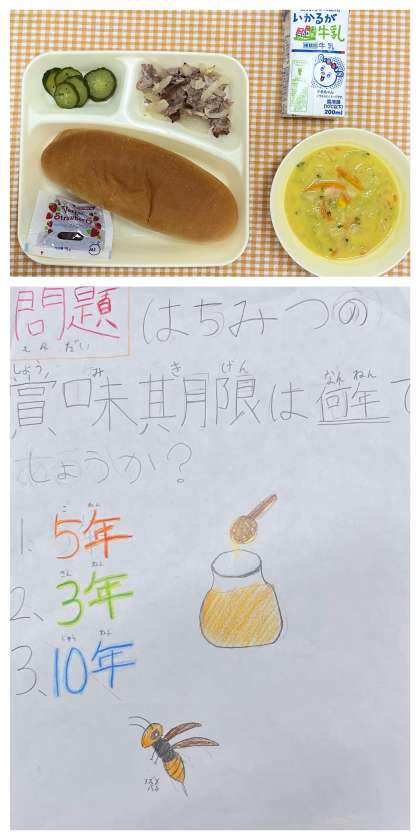 いかるが
牛乳
種類別 牛乳
200ml
Strawberry
問題
もんだい
はちみつの
しょう み き げん なん ねん
賞味期限は何年で
しょうか?
ご ねん
1. 5年
さん ねん
2、3年
じゅう ねん
3、10年
スズメ
バチ